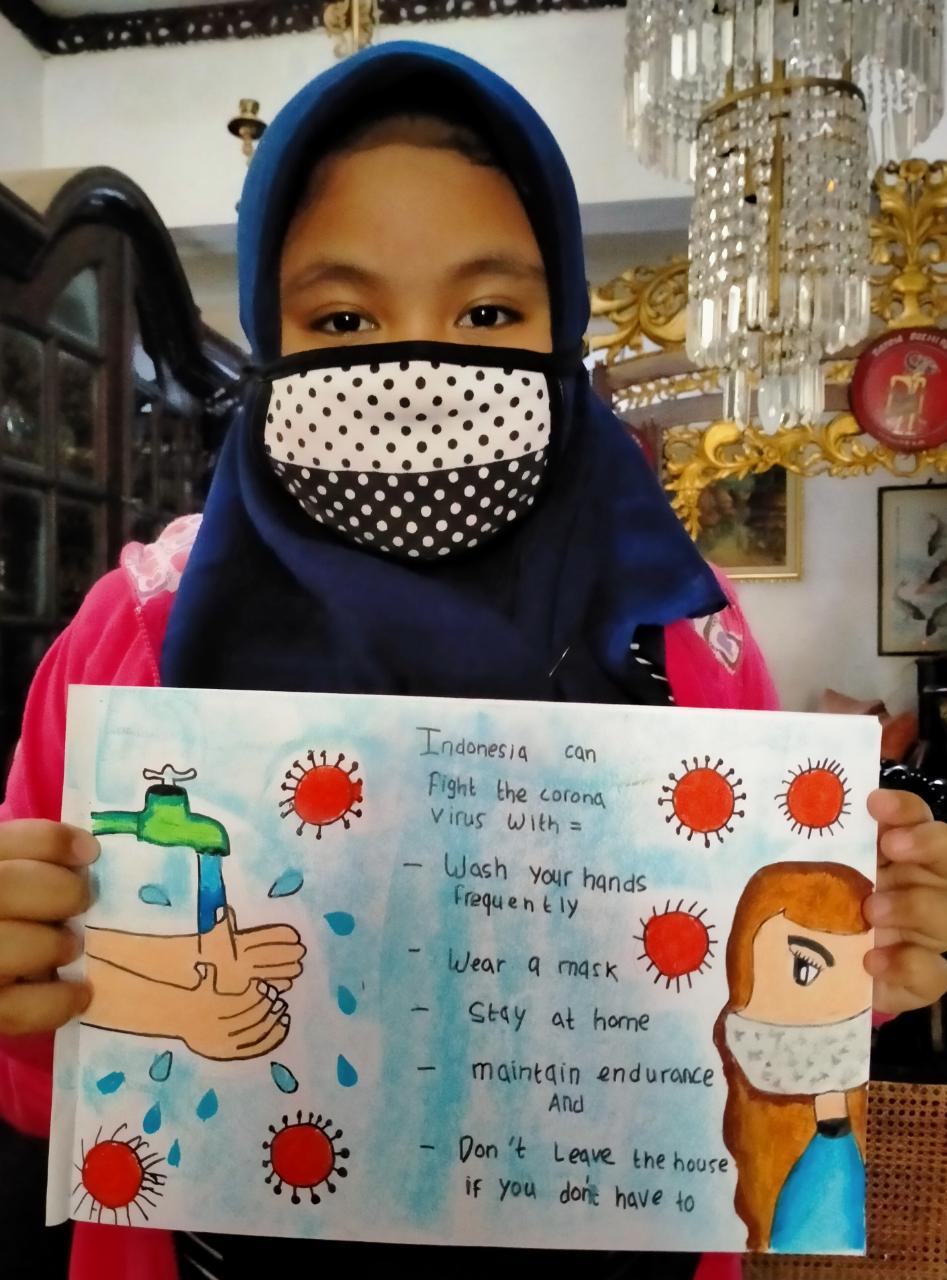 Indonesia can
fight the corona
virus with =
- Wash your hands
frequently
- Wear a mask
- Stay at home
- maintain endurance
And
- Don't Leave the house
if you don't have to